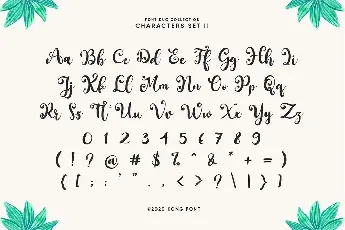 FONT DUO COLLECTION
CHARACTERS SET II
Aa Bb Cc Dd Ee Ff Gg Hh Ii
Jj Kk Ll Mm Nn Oo Pp Qq
Rr Ss Tt Uu Vv Ww Xx Yy Zz
0 1 2 3 4 5 6 7 8 9
( ! ? @ # $ % ^ & * + = )
{ [ ; : ' " . , < > ? \ | } ]